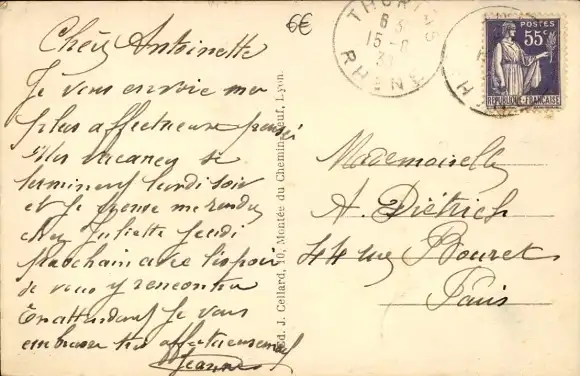 6€
Chère Antoinette
Je vous envoie ma
plus affectueuse pensée
Mes vacances se
terminent lundi soir
et je pense me rendre
chez Juliette jeudi
prochain avec l'espoir
de vous y rencontrer
En attendant je vous
embrasse très affectueusement
Jeanne
Ed. J. Cellard, 10, Montée du Chemin-Neuf, Lyon.
THURINS
RHÔNE
POSTES
55c
REPUBLIQUE FRANÇAISE
Mademoiselle
A. Diétrich
44 rue Bouret
Paris